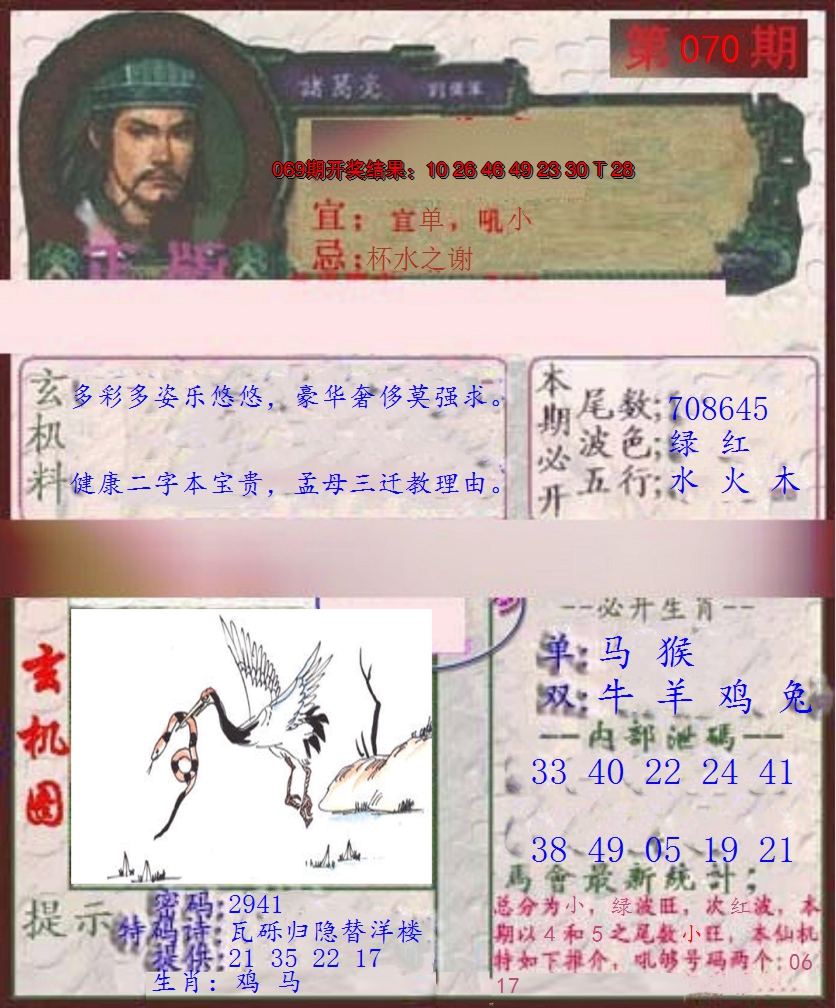 第 070 期
諸葛亮
069期开奖结果：10 26 46 49 23 30 T 28
宜；宜单，吼小
忌；杯水之谢
正版
玄机料
多彩多姿乐悠悠，豪华奢侈莫强求。
健康二字本宝贵，孟母三迁教理由。
本期必开
尾数;708645
波色;绿 红
五行;水 火 木
玄机图
--必开生肖--
单:马 猴
双:牛 羊 鸡 兔
—内部泄碼—
33 40 22 24 41
38 49 05 19 21
馬會最新统計；
总分为小，绿波旺，次红波，本
期以4和5之尾数小旺，本仙机
特如下推介，吼够号码两个:06
17
提示
密码:2941
特码诗:瓦砾归隐替洋楼
提供:21 35 22 17
生肖：鸡 马